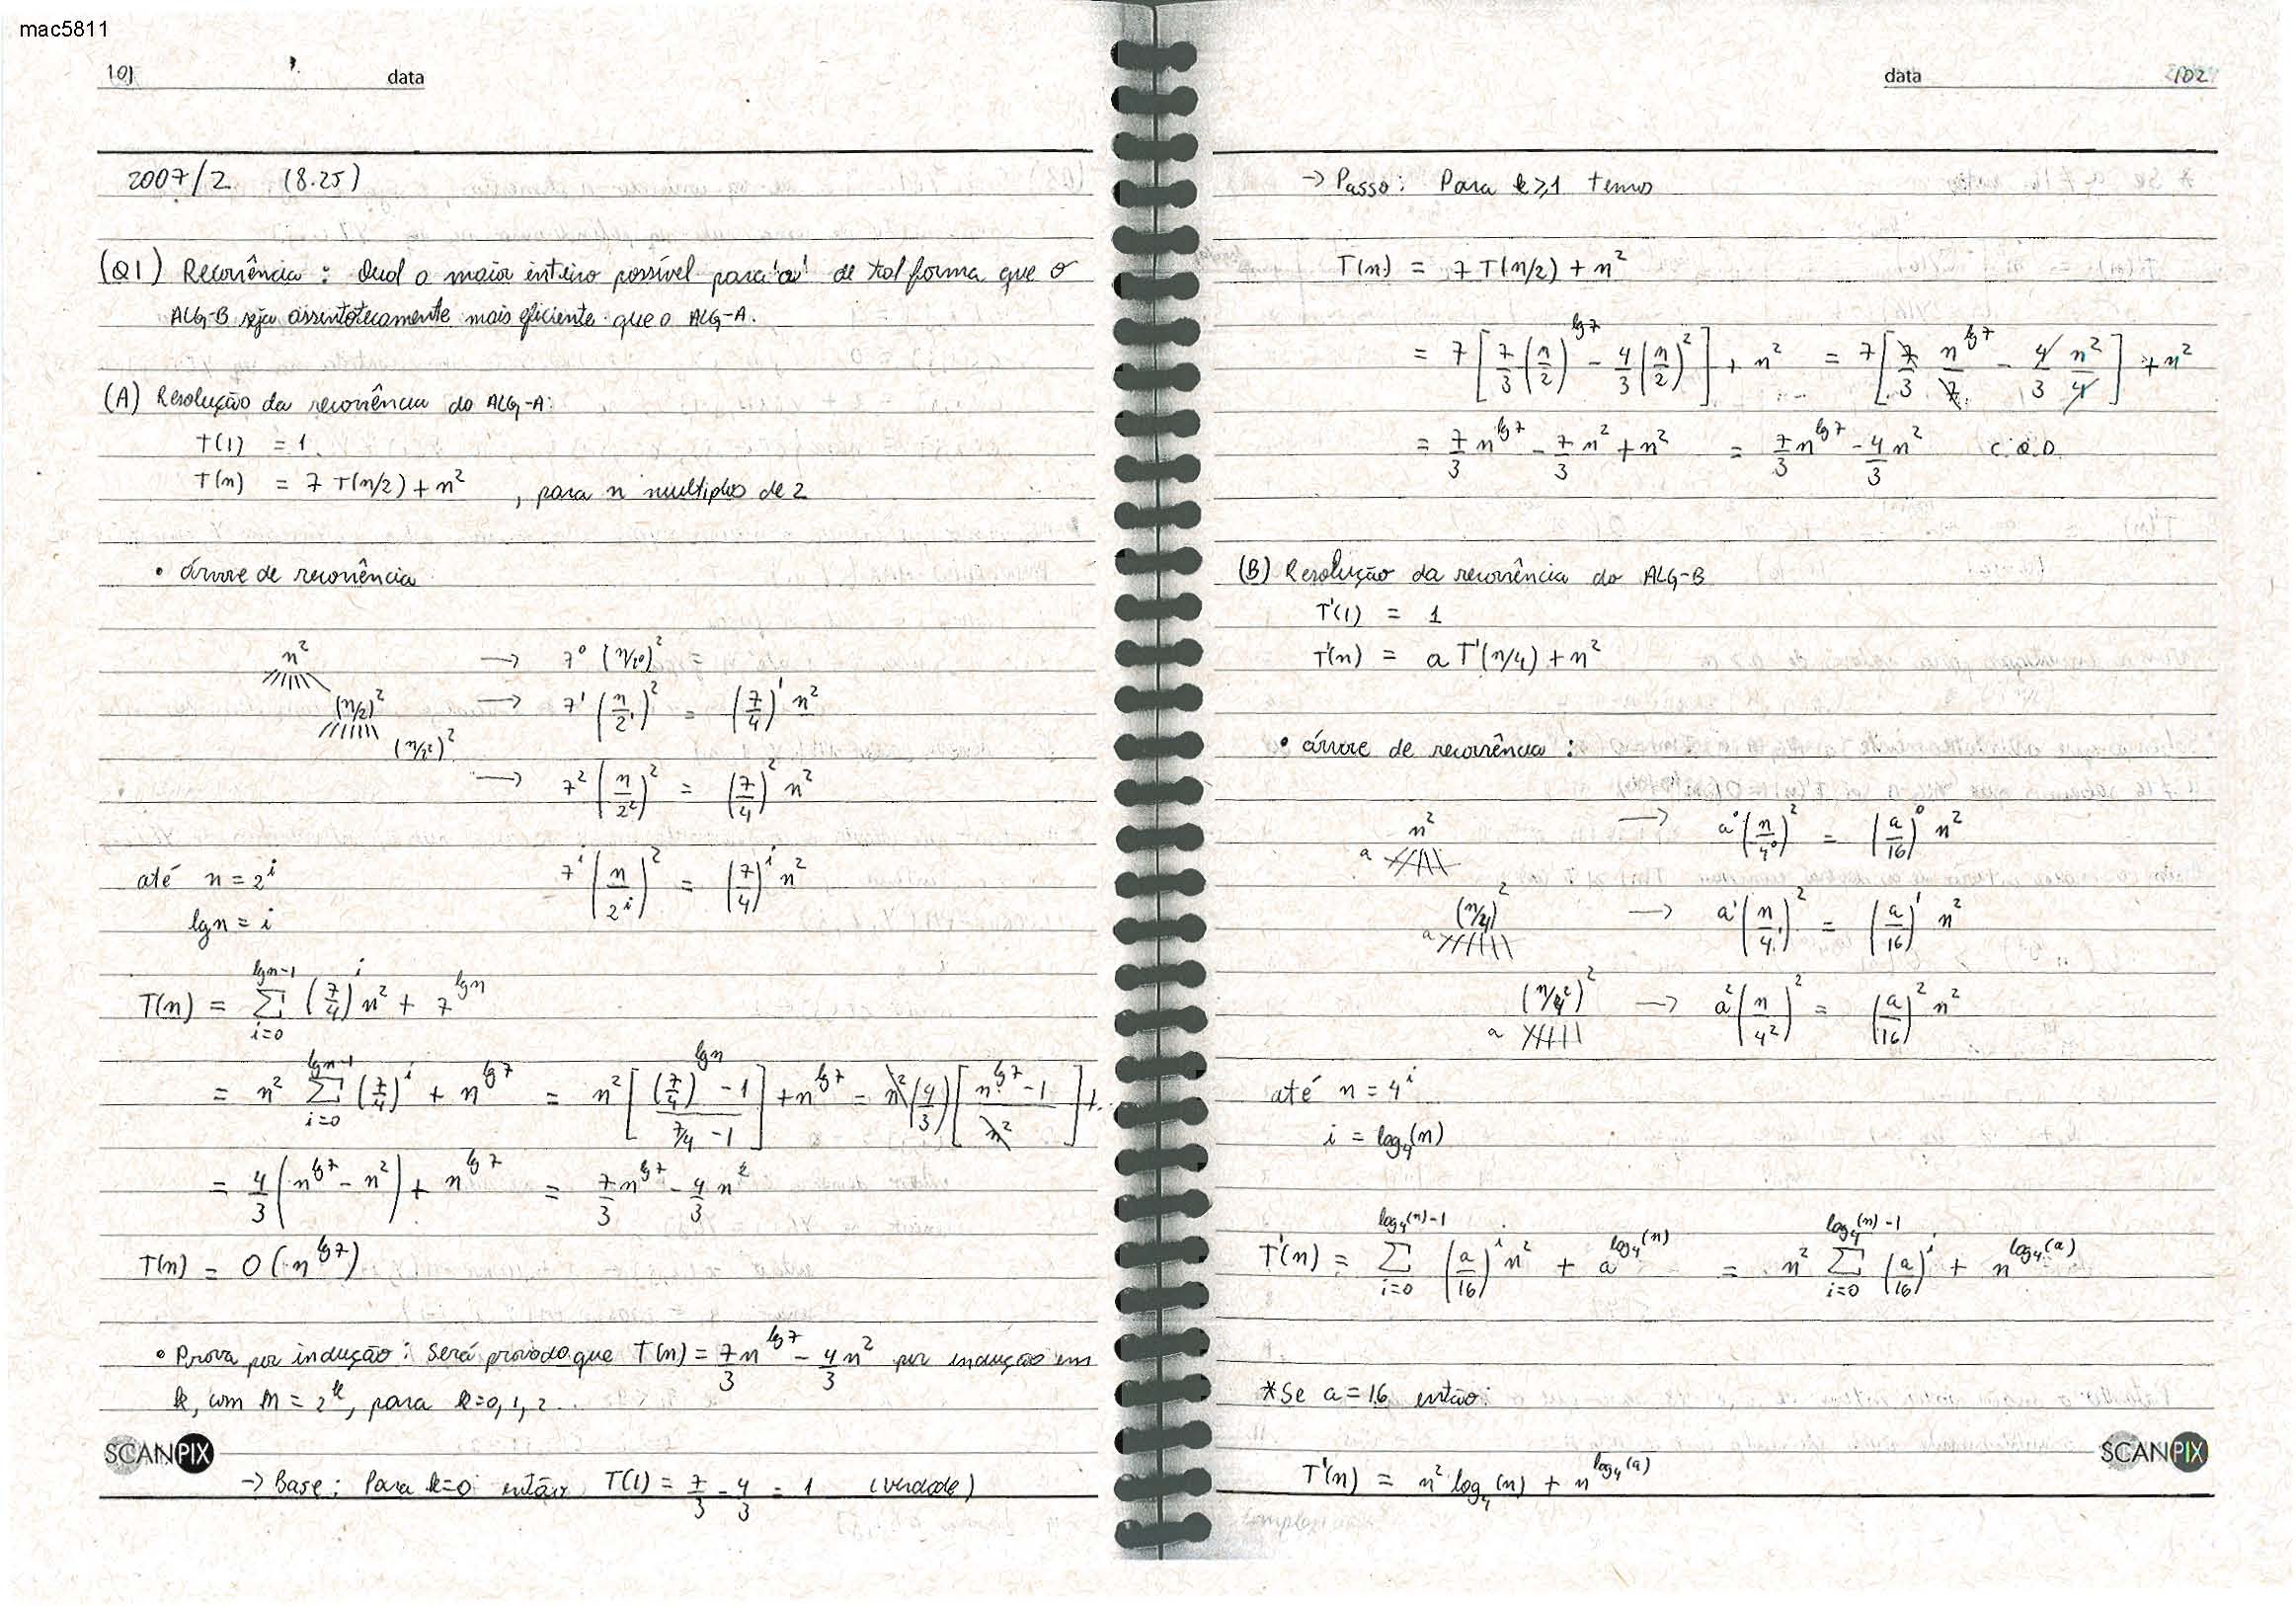 mac5811
101 data
2007/2 (8.25)
(Q1) Recorrência: Qual o maior inteiro possível para 'a' de tal forma que o
ALG-B seja assintoticamente mais eficiente que o ALG-A.
(A) Resolução da recorrência do ALG-A:
T(1) = 1
T(n) = 7 T(n/2) + n² , para n multiplos de 2
• árvore de recorrência
n² → 7⁰ (n/2⁰)² =
(n/2)² → 7¹ (n/2¹)² = (7/4)¹ n²
(n/2²)²
→ 7² (n/2²)² = (7/4)² n²
até n = 2^i 7^i (n/2^i)² = (7/4)^i n²
lg n = i
T(n) = Σ_{i=0}^{lg n-1} (7/4)^i n² + 7^{lg n}
= n² Σ_{i=0}^{lg n-1} (7/4)^i + n^{lg 7} = n² [((7/4)^{lg n} - 1)/(7/4 - 1)] + n^{lg 7} = n² (4/3) [(n^{lg 7} - 1)/n²] + ..
= 4/3 (n^{lg 7} - n²) + n^{lg 7} = 7/3 n^{lg 7} - 4/3 n²
T(n) = O(n^{lg 7})
• Prova por indução: Será provado que T(n) = 7/3 n^{lg 7} - 4/3 n² por indução em
k, com n = 2^k, para k=0,1,2...
SCANPIX
→ Base: Para k=0 então T(1) = 7/3 - 4/3 = 1 (verdade)
data 102
→ Passo: Para k≥1 temos
T(n) = 7 T(n/2) + n²
= 7 [7/3 (n/2)^{lg 7} - 4/3 (n/2)²] + n² = 7 [7/3 n^{lg 7}/7 - 4/3 n²/4] + n²
= 7/3 n^{lg 7} - 7/3 n² + n² = 7/3 n^{lg 7} - 4/3 n² C.Q.D.
(B) Resolução da recorrência do ALG-B
T'(1) = 1
T'(n) = a T'(n/4) + n²
• árvore de recorrência:
n² → a⁰ (n/4⁰)² = (a/16)⁰ n²
a
(n/4)² → a¹ (n/4¹)² = (a/16)¹ n²
a
(n/4²)² → a² (n/4²)² = (a/16)² n²
a
até n = 4^i
i = log₄(n)
T'(n) = Σ_{i=0}^{log₄(n)-1} (a/16)^i n² + a^{log₄(n)} = n² Σ_{i=0}^{log₄(n)-1} (a/16)^i + n^{log₄(a)}
*Se a=16 então:
SCANPIX
T'(n) = n² log₄(n) + n^{log₄(a)}